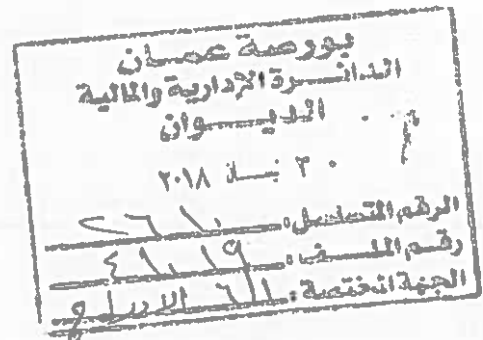 بورصة عمان
الدائرة الادارية والمالية
الديوان
٣٠ نيسان ٢٠١٨
الرقم المتسلسل:
رقم الملف: ٤١٠١٩
الجهة المختصة: